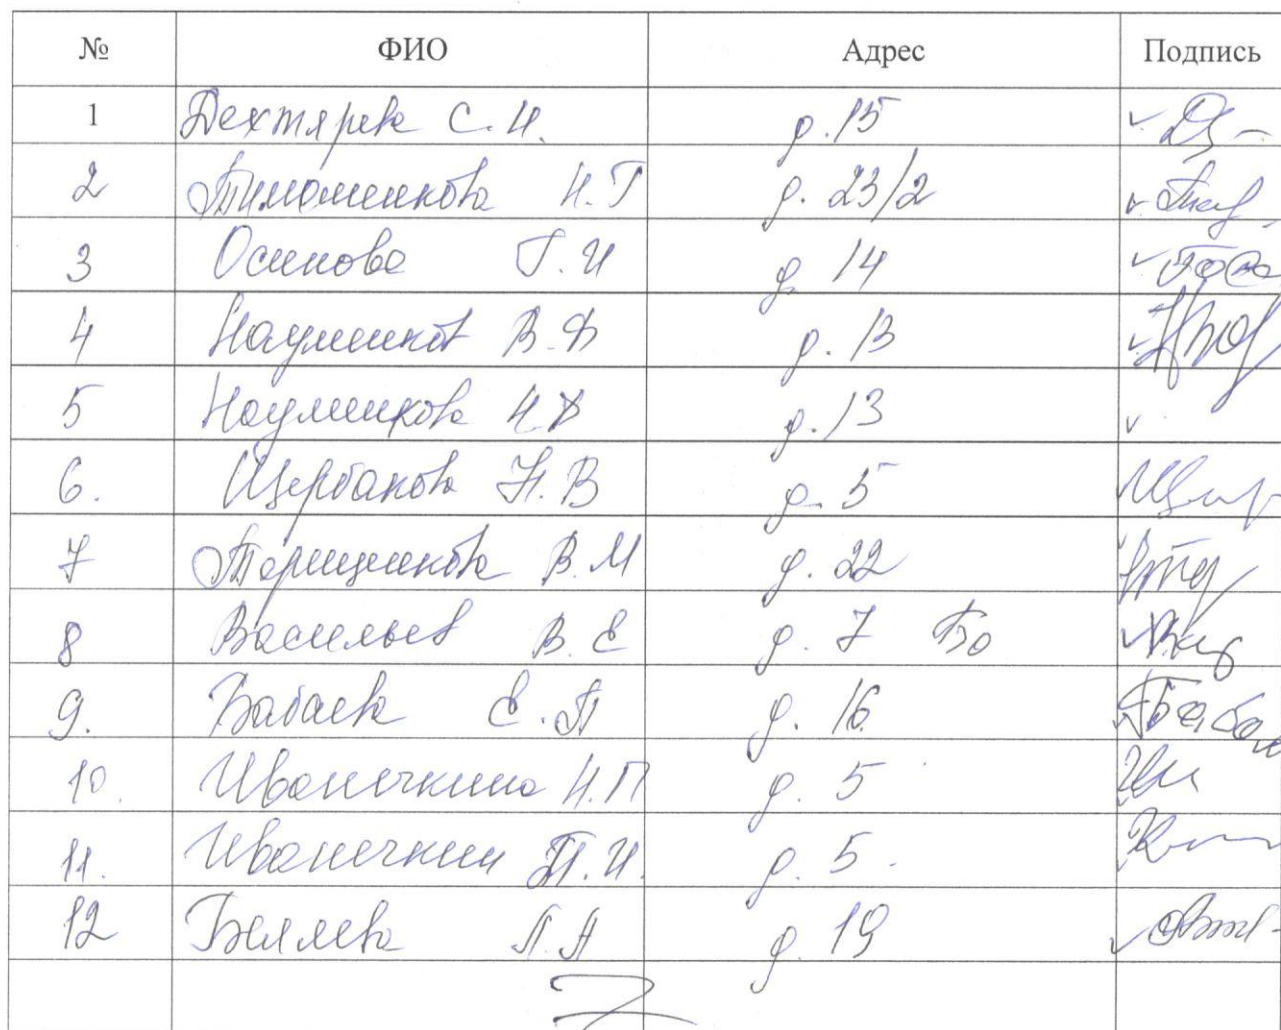 № ФИО Адрес Подпись
1 Дехтярева С.И. д.15
2 Тимошенкова Н.Г д. 23/2
3 Осипова Г.И д. 14
4 Науменков В.Ф д. 13
5 Науменкова Н.Ф д. 13
6. Щербакова Н.В д. 5
7 Терищенкова В.М д. 22
8 Васильев В.Е д. 7 Бо
9. Бабаева Е.П д. 16
10. Иванечкина Н.П д. 5
11. Иванечкин П.И. д. 5.
12 Беляева Л.А д. 19